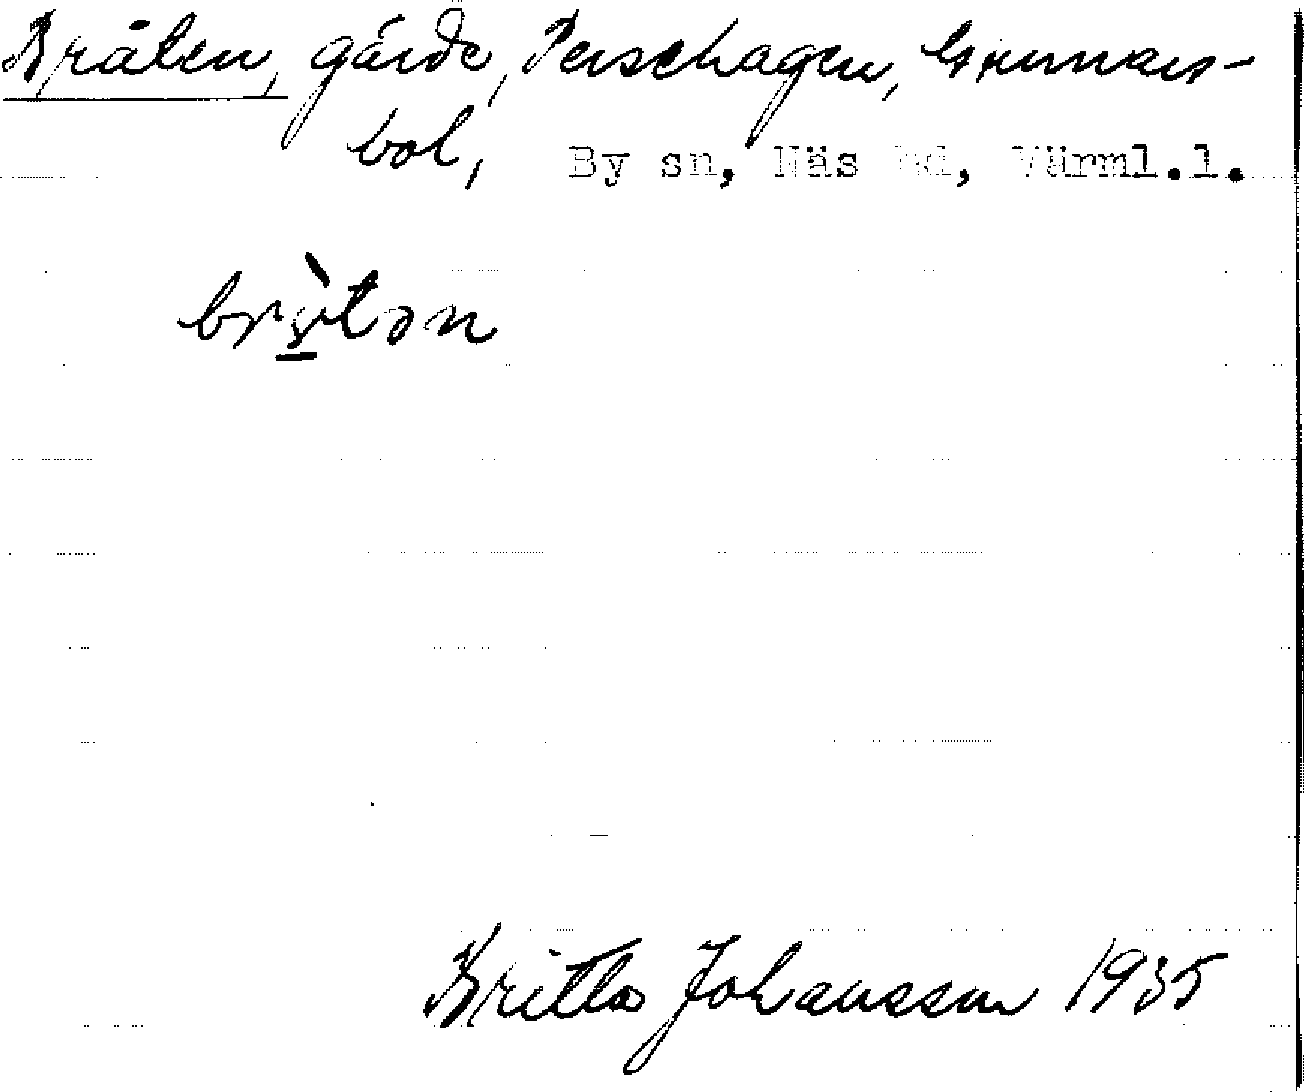 Bråten, gärde, Perschagen, Gunnars-
bol, By sn, Näs hd, Värml.l.
Britta Johansson 1935